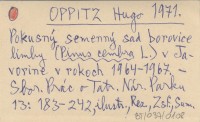 OPPITZ Hugo 1971.
Pokusný semenný sad borovice
limby (Pinus cembra L.) v Ja-
vorine v rokoch 1964-1967. -
Sbor. Prác o Tatr. Nár. Parku
13: 183-242, ilustr., Rez., Zsf., Sum.